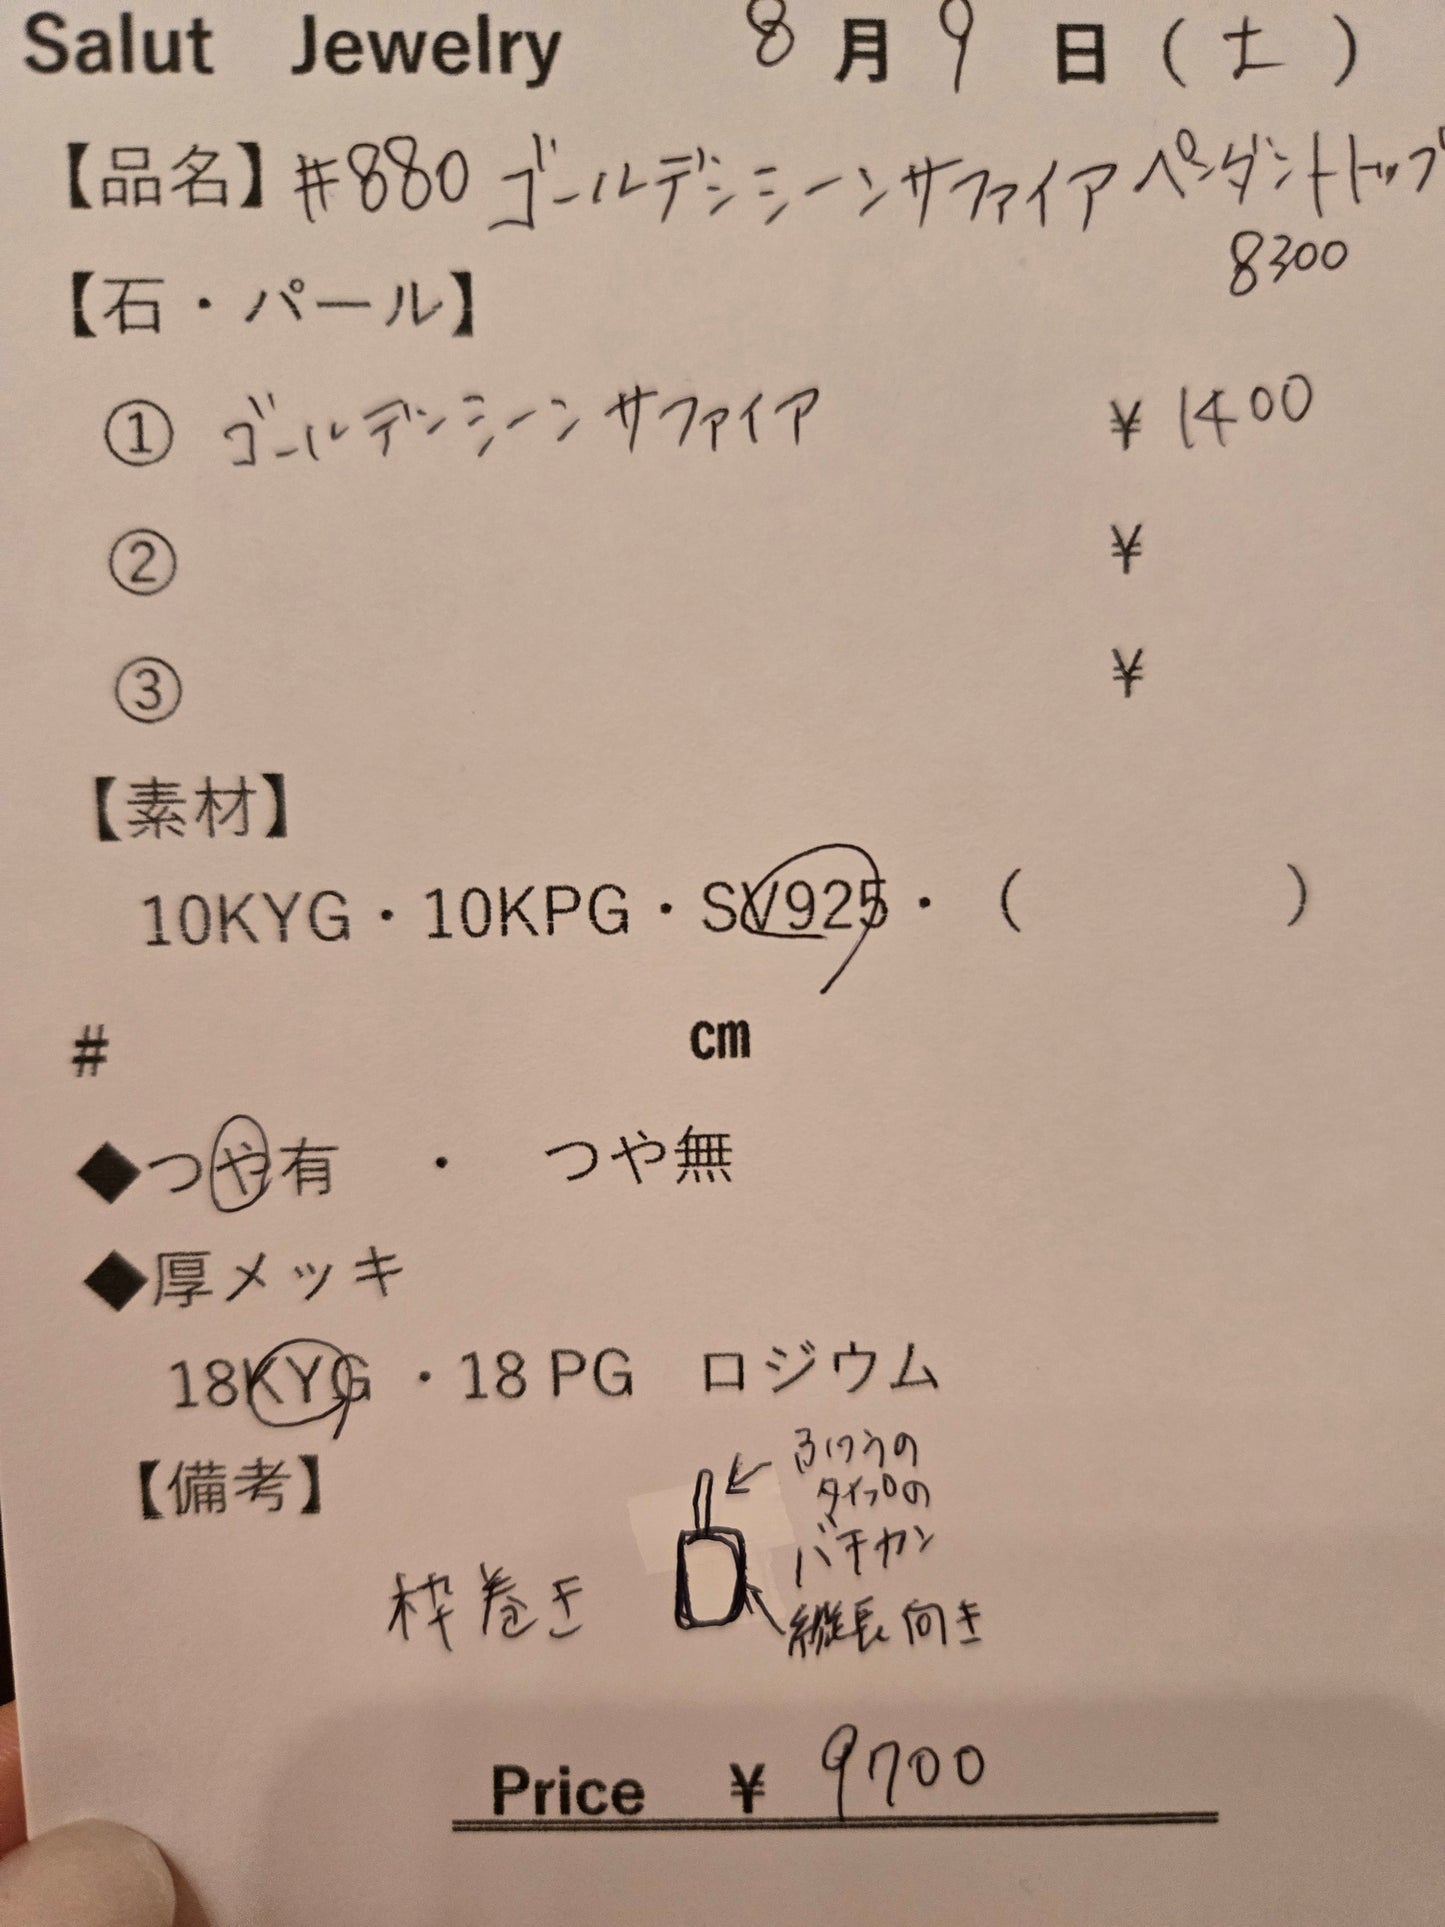 Salut Jewelry 8月9日(土)
【品名】#880 ゴールデンシーンサファイア ペンダントトップ
8300
【石・パール】
① ゴールデンシーンサファイア ¥1400
② ¥
③ ¥
【素材】
10KYG・10KPG・SV925・( )
# cm
◆つや有 ・ つや無
◆厚メッキ
18KYG ・18 PG ロジウム
【備考】
ふつうの
タイプの
バチカン
枠巻き
縦長向き
Price ¥ 9700